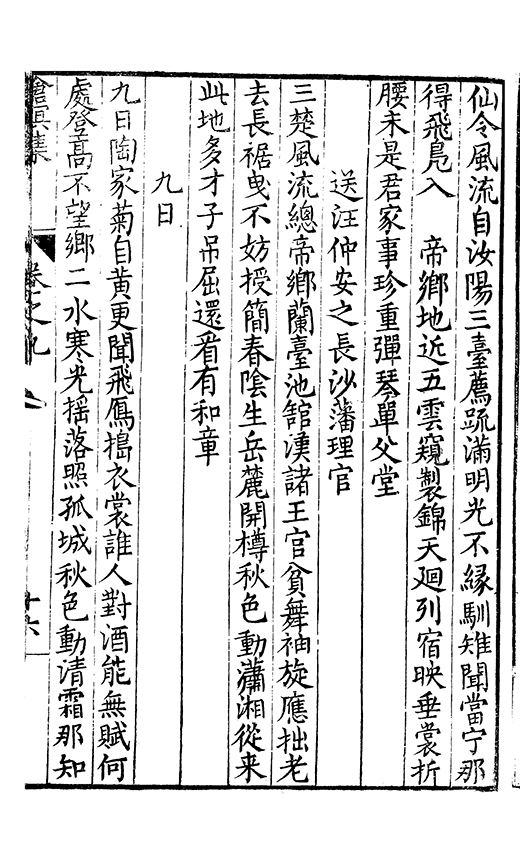 仙令風流自汝陽三臺薦疏滿明光不緣馴雉聞當宁那
得飛鳧入　帝鄉地近五雲窺製錦天廻列宿映垂裳折
腰未是君家事珍重彈琴單父堂
送汪仲安之長沙藩理官
三楚風流總帝鄉蘭臺池舘漢諸王官貧舞袖旋應拙老
去長裾曳不妨授簡春陰生岳麓開樽秋色動瀟湘從來
此地多才子吊屈還看有和章
九日
九日陶家菊自黃更聞飛鴈搗衣裳誰人對酒能無賦何
處登高不望鄉二水寒光揺落照孤城秋色動清霜那知
滄溟集
卷之九
十六